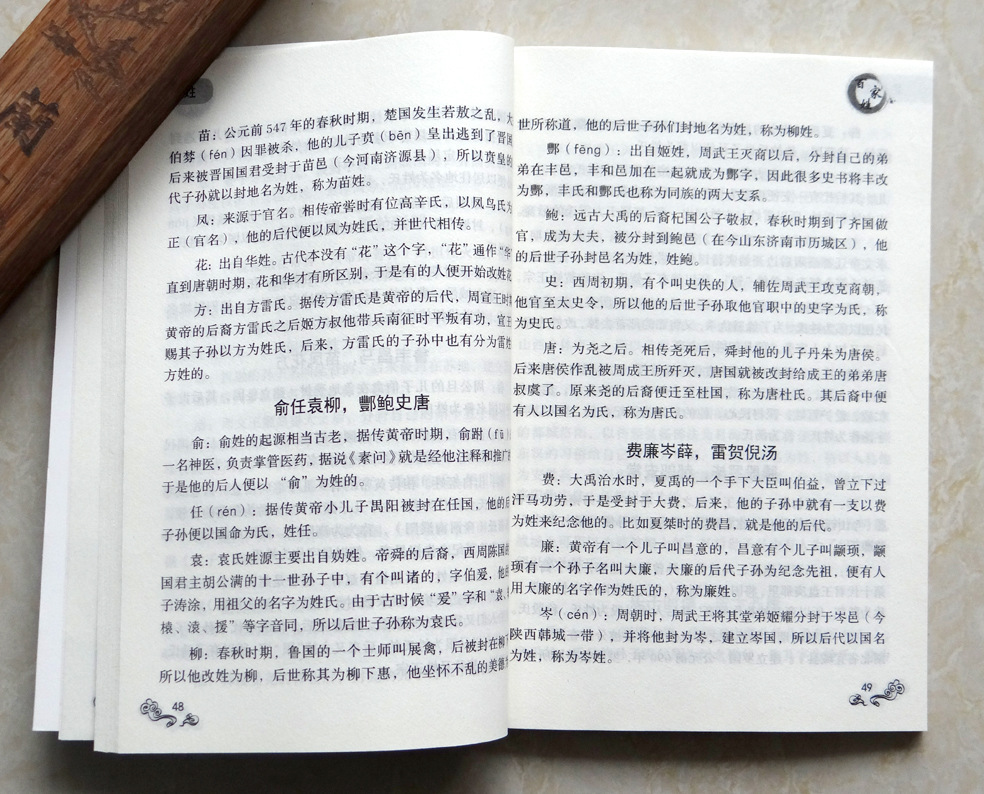 兰
姓
苗：公元前 547 年的春秋时期，楚国发生若敖之乱，大
伯棼（fén）因罪被杀，他的儿子贲（bēn）皇出逃到了晋国
后来被晋国国君受封于苗邑（今河南济源县），所以贲皇的
代子孙就以封地名为姓，称为苗姓。
风：来源于官名。相传帝喾时有位高辛氏，以凤鸟氏为
正（官名），他的后代便以凤为姓氏，并世代相传。
花：出自华姓。古代本没有“花”这个字，“花”通作“华
直到唐朝时期，花和华才有所区别，于是有的人便开始改姓花
方：出自方雷氏。据传方雷氏是黄帝的后代，周宣王时
黄帝的后裔方雷氏之后姬方叔他带兵南征时平叛有功，宣王
赐其子孙以方为姓氏，后来，方雷氏的子孙中也有分为雷姓
方姓的。
俞任袁柳，酆鲍史唐
俞：俞姓的起源相当古老，据传黄帝时期，俞跗（fū
一名神医，负责掌管医药，据说《素问》就是经他注释和推广
于是他的后人便以 “俞” 为姓的。
任（rén）：据传黄帝小儿子禺阳被封在任国，他的后
子孙便以国命为氏，姓任。
袁：袁氏姓源主要出自妫姓。帝舜的后裔，西周陈国的
国君主胡公满的十一世孙子中，有个叫诸的，字伯爰，他的
子涛涂，用祖父的名字为姓氏。由于古时候 “爰” 字和 “袁、
榬、溒、援” 等字音同，所以后世子孙称为袁氏。
柳：春秋时期，鲁国的一个士师叫展禽，后被封在柳下
所以他改姓为柳，后世称其为柳下惠，他坐怀不乱的美德为
48
百家姓
世所称道，他的后世子孙们封地名为姓，称为柳姓。
酆（fēng）：出自姬姓，周武王灭商以后，分封自己的弟
弟在丰邑，丰和邑加在一起就成为酆字，因此很多史书将丰改
为酆，丰氏和酆氏也称为同族的两大支系。
鲍：远古大禹的后裔杞国公子敬叔，春秋时期到了齐国做
官，成为大夫，被分封到鲍邑（在今山东济南市历城区），他
的后世子孙封邑名为姓，姓鲍。
史：西周初期，有个叫史佚的人，辅佐周武王攻克商朝，
他官至太史令，所以他的后世子孙取他官职中的史字为氏，称
为史氏。
唐：为尧之后。相传尧死后，舜封他的儿子丹朱为唐侯。
后来唐侯作乱被周成王所歼灭，唐国就被改封给成王的弟弟唐
叔虞了。原来尧的后裔便迁至杜国，称为唐杜氏。其后裔中便
有人以国名为氏，称为唐氏。
费廉岑薛，雷贺倪汤
费：大禹治水时，夏禹的一个手下大臣叫伯益，曾立下过
汗马功劳，于是受封于大费，后来，他的子孙中就有一支以费
为姓来纪念他的。比如夏桀时的费昌，就是他的后代。
廉：黄帝有一个儿子叫昌意的，昌意有个儿子叫颛顼，颛
顼有一个孙子名叫大廉，大廉的后代子孙为纪念先祖，便有人
用大廉的名字作为姓氏的，称为廉姓。
岑（cén）：周朝时，周武王将其堂弟姬耀分封于岑邑（今
陕西韩城一带），并将他封为岑，建立岑国，所以后代以国名
为姓，称为岑姓。
49